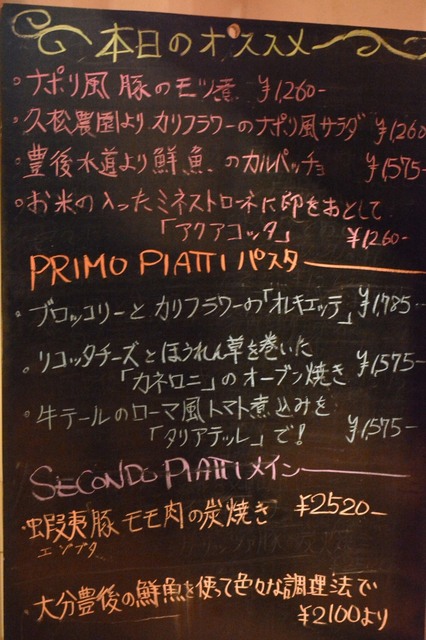 本日のオススメ
・ナポリ風 豚のモツ煮 ¥1,260-
・久松農園より カリフラワーのナポリ風サラダ ¥1,260
・豊後水道より 鮮魚のカルパッチョ ¥1,575-
・お米の入ったミネストローネに卵をおとして
「アクアコッタ」 ¥1,260-
PRIMO PIATTI パスタ
・ブロッコリーと カリフラワーの「オレキエッテ」 ¥1,785-
・リコッタチーズとほうれん草を巻いた
「カネロニ」のオーブン焼き ¥1,575-
・牛テールのローマ風トマト煮込みを
「タリアテッレ」で! ¥1,575-
SECONDO PIATTI メイン
・蝦夷豚 モモ肉の炭焼き ¥2520-
エゾブタ
・大分豊後の鮮魚を使って色々な調理法で
¥2100より